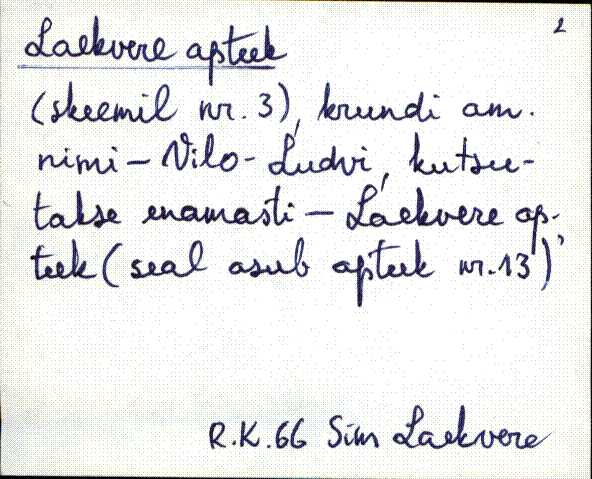 2
Laekvere apteek
(skeemil nr. 3), krundi am.
nimi - Vilo-Ludvi, kutsu-
takse enamasti - Laekvere ap-
teek (seal asub apteek nr. 13)
R.K. 66 Sim Laekvere